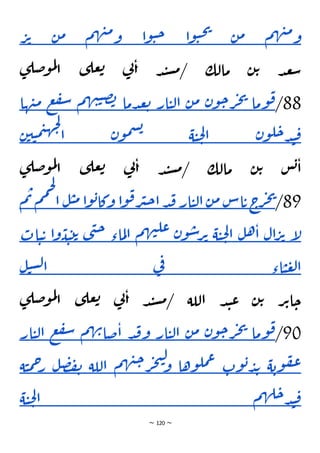 ومنهم من يحبوا حبوا ومنهم من يز
سعد بن مالك /مسند أبي يعلى الموصلي
88/قوما يخرجون من النار بعدما يصيبهم سفع منها
فيدخلون الجنة يسمون الجهنميين
أنس بن مالك /مسند أبي يعلى الموصلي
89/يخرج ناس من النار قد احترقوا وكانوا مثل الحمم ثم
لا يزال أهل الجنة يرشون عليهم الماء حتى ينبتوا نبات
الغثاء في السيل
جابر بن عبد الله /مسند أبي يعلى الموصلي
90/قوما يخرجون من النار وقد أصابهم سفع النار
عقوبة بذنوب عملوها وليخرجنهم الله بفضل رحمته
فيدخلهم الجنة
~ 120 ~